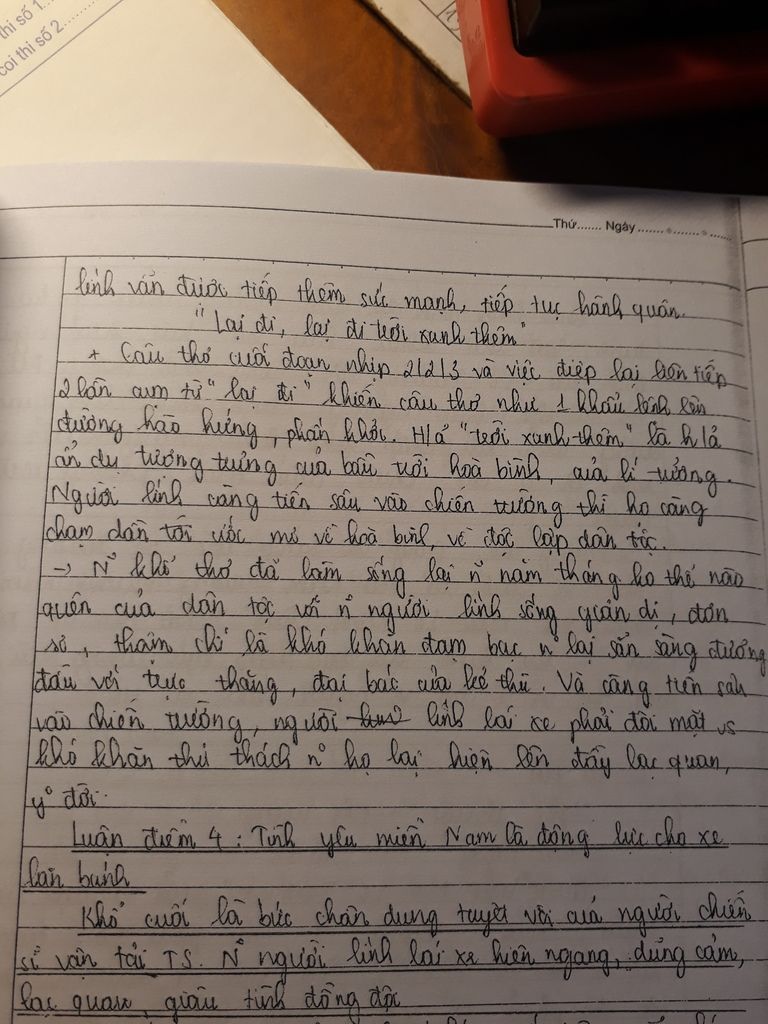 thi số 1...
coi thi số 2......
Thứ....... Ngày..................
lính vẫn được tiếp thêm sức mạnh, tiếp tục hành quân.
"Lại đi, lại đi trời xanh thêm"
+ Câu thơ cuối đoạn nhịp 2/2/3 và việc điệp lại liên tiếp
2 lần cụm từ "lại đi" khiến câu thơ như 1 khẩu lệnh lên
đường hào hứng, phấn khởi. H/a "trời xanh thêm" là h/a
ẩn dụ tượng trưng của bầu trời hoà bình, của lí tưởng.
Người lính càng tiến sâu vào chiến trường thì họ càng
chạm dần tới ước mơ về hoà bình, về độc lập dân tộc.
→ N° khổ thơ đã làm sống lại n° năm tháng ko thể nào
quên của dân tộc với n° người lính sống giản dị, đơn
sơ, thậm chí là khó khăn đạm bạc n° lại sẵn sàng đương
đầu với trực thăng, đại bác của kẻ thù. Và càng tiến sâu
vào chiến trường, người lính lái xe phải đối mặt vs
khó khăn thử thách n° họ lại hiện lên đầy lạc quan,
y° đời.
Luận điểm 4: Tình yêu miền Nam là động lực cho xe
lăn bánh
Khổ cuối là bức chân dung tuyệt vời của người chiến
sĩ vận tải TS. N° người lính lái xe hiên ngang, dũng cảm,
lạc quan, giàu tình đồng đội